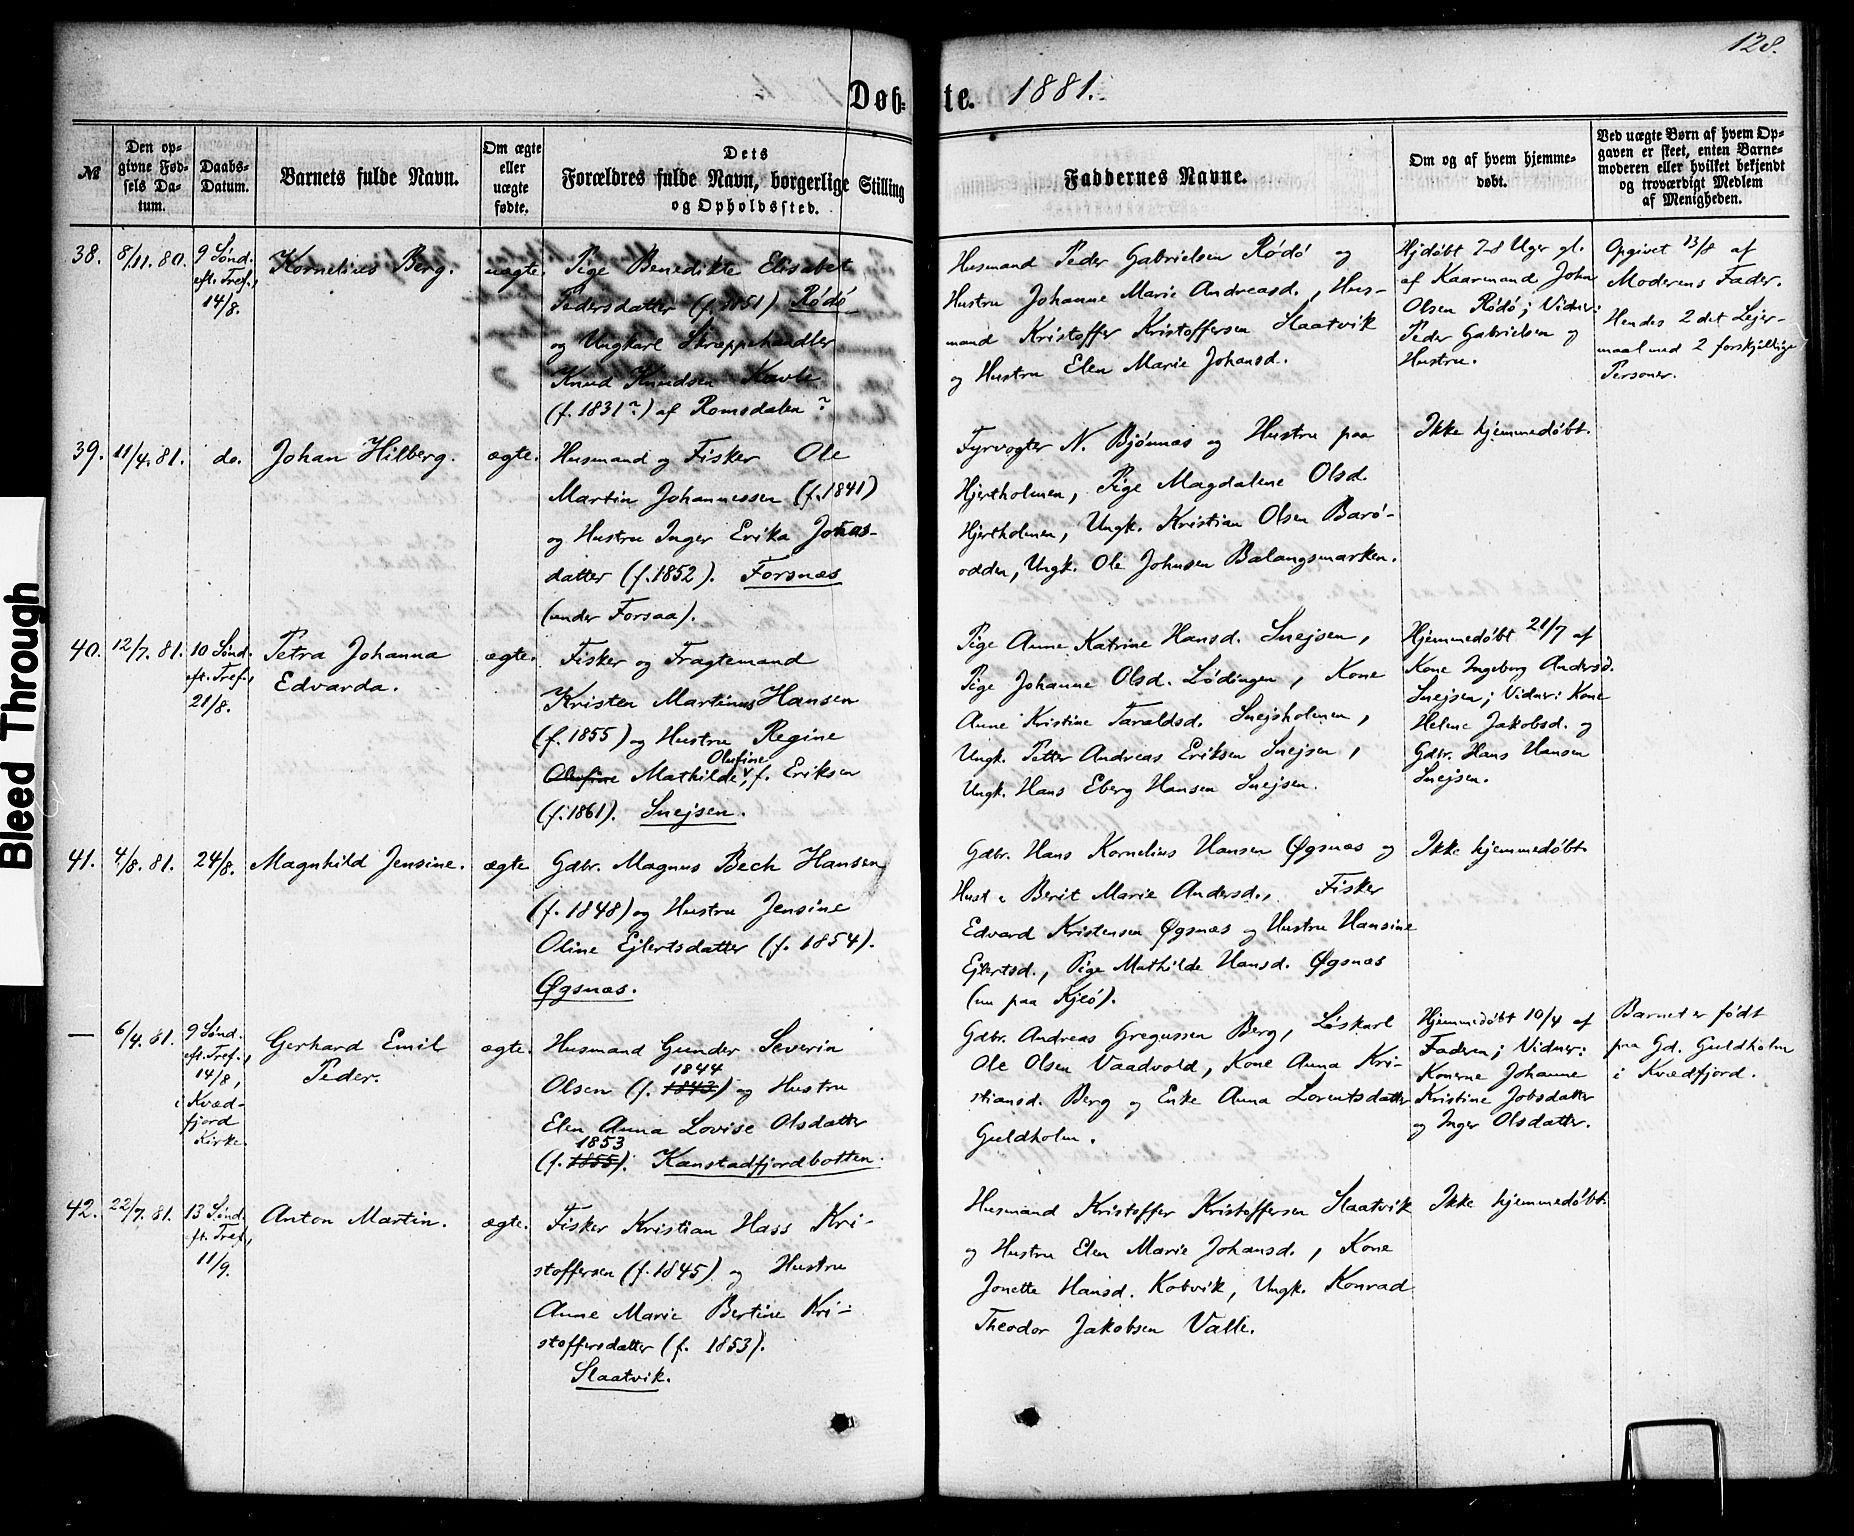 128.
Døb-te. 1881.
№
Den op-
givne Fød-
sels Da-
tum.
Daabs-
Datum.
Barnets fulde Navn.
Om ægte
eller
uægte
fødte.
Dets
Forældres fulde Navn, borgerlige Stilling
og Opholdssted.
Faddernes Navne.
Om og af hvem hjemme-
døbt.
Ved uægte Børn af hvem Op-
gaven er skeet, enten Barne-
moderen eller hvilket bekjendt
og troværdigt Medlem
af Menigheden.
38.
8/11. 80.
9 Sønd.
eft. Tref.,
14/8.
Kornelius Berg.
uægte.
Pige Benedikte Elisabet
Pedersdatter (f. 1851) Rødø
og Ungkarl Skræppehandler
Knud Knudsen Kavli
(f. 1831?) af Romsdalen?
Husmand Peder Gabrielsen Rødø og
Hustru Johanne Marie Andreasd., Hus-
mand Kristoffer Kristoffersen Slaatvik
og Hustru Elen Marie Johansd.
Hjdøbt 7-8 Uger gl.
af Kaarmand John
Olsen Rødø; Vidner:
Peder Gabrielsen og
Hustru.
Opgivet 13/8 af
Moderens Fader.
Hendes 2det Lejer-
maal med 2 forskjellige
Personer.
39.
11/4. 81.
do.
Johan Hilberg.
ægte.
Husmand og Fisker Ole
Martin Johannessen (f. 1841)
og Hustru Inger Erika Jonas-
datter (f. 1852). Forsnæs
(under Forsaa).
Fyrvogter N. Bjønnæs og Hustru paa
Hjertholmen, Pige Magdalene Olsd.
Hjertholmen, Ungk. Kristian Olsen Barø-
odden, Ungk. Ole Johnsen Balangsmarken.
Ikke hjemmedøbt.
40.
12/7. 81.
10 Sønd.
eft. Tref.,
21/8.
Petra Johanna
Edvarda.
ægte.
Fisker og Fragtemand
Kristen Martinus Hansen
(f. 1855) og Hustru Regine
Olufine
Olufine Mathilde, f. Eriksen
(f. 1861). Snejsen.
Pige Anne Katrine Hansd. Snejsen,
Pige Johanne Olsd. Lødingen, Kone
Anne Kristine Taraldsd. Snejsholmen,
Ungk. Petter Andreas Eriksen Snejsen,
Ungk. Hans Eberg Hansen Snejsen.
Hjemmedøbt 21/7 af
Kone Ingeborg Andersd.
Snejsen; Vidner: Kone
Helene Jakobsd. og
Gdbr. Hans Hansen
Snejsen.
41.
4/8. 81.
24/8.
Magnhild Jensine.
ægte
Gdbr. Magnus Bech Hansen
(f. 1848) og Hustru Jensine
Oline Ejlertsdatter (f. 1854).
Øgsnæs.
Gdbr. Hans Kornelius Hansen Øgsnæs og
Hustru Berit Marie Andersd., Fisker
Edvard Kristensen Øgsnæs og Hustru Hansine
Ejlertsd., Pige Mathilde Hansd. Øgsnæs
(nu paa Kjeø).
Ikke hjemmedøbt.
—
6/4. 81.
9 Sønd.
eft. Tref.,
14/8,
i Kvæd-
fjord
Kirke.
Gerhard Emil
Peder.
ægte.
Husmand Gunder Severin
1844
Olsen (f. 1843) og Hustru
Elen Anna Lovise Olsdatter
1853
(f. 1855). Kanstadfjordbotten.
Gdbr. Andreas Gregussen Berg, Løskarl
Ole Olsen Vaadvold, Kone Anna Kri-
stiansd. Berg og Enke Anna Lorentsdatter
Guldholm.
Hjemmedøbt 10/4 af
Faderen; Vidner:
Konerne Johanne
Kristine Jobsdatter
og Inger Olsdatter.
Barnet er født
paa Gd. Guldholm
i Kvædfjord.
42.
22/7. 81.
13 Sønd.
eft. Tref.,
11/9.
Anton Martin.
ægte.
Fisker Kristian Hass Kri-
stoffersen (f. 1845) og Hustru
Anne Marie Bertine Kri-
stoffersdatter (f. 1853).
Slaatvik.
Husmand Kristoffer Kristoffersen Slaatvik
og Hustru Elen Marie Johansd., Kone
Jonette Hansd. Kobvik, Ungk. Konrad
Theodor Jakobsen Valle.
Ikke hjemmedøbt.
Bleed Through